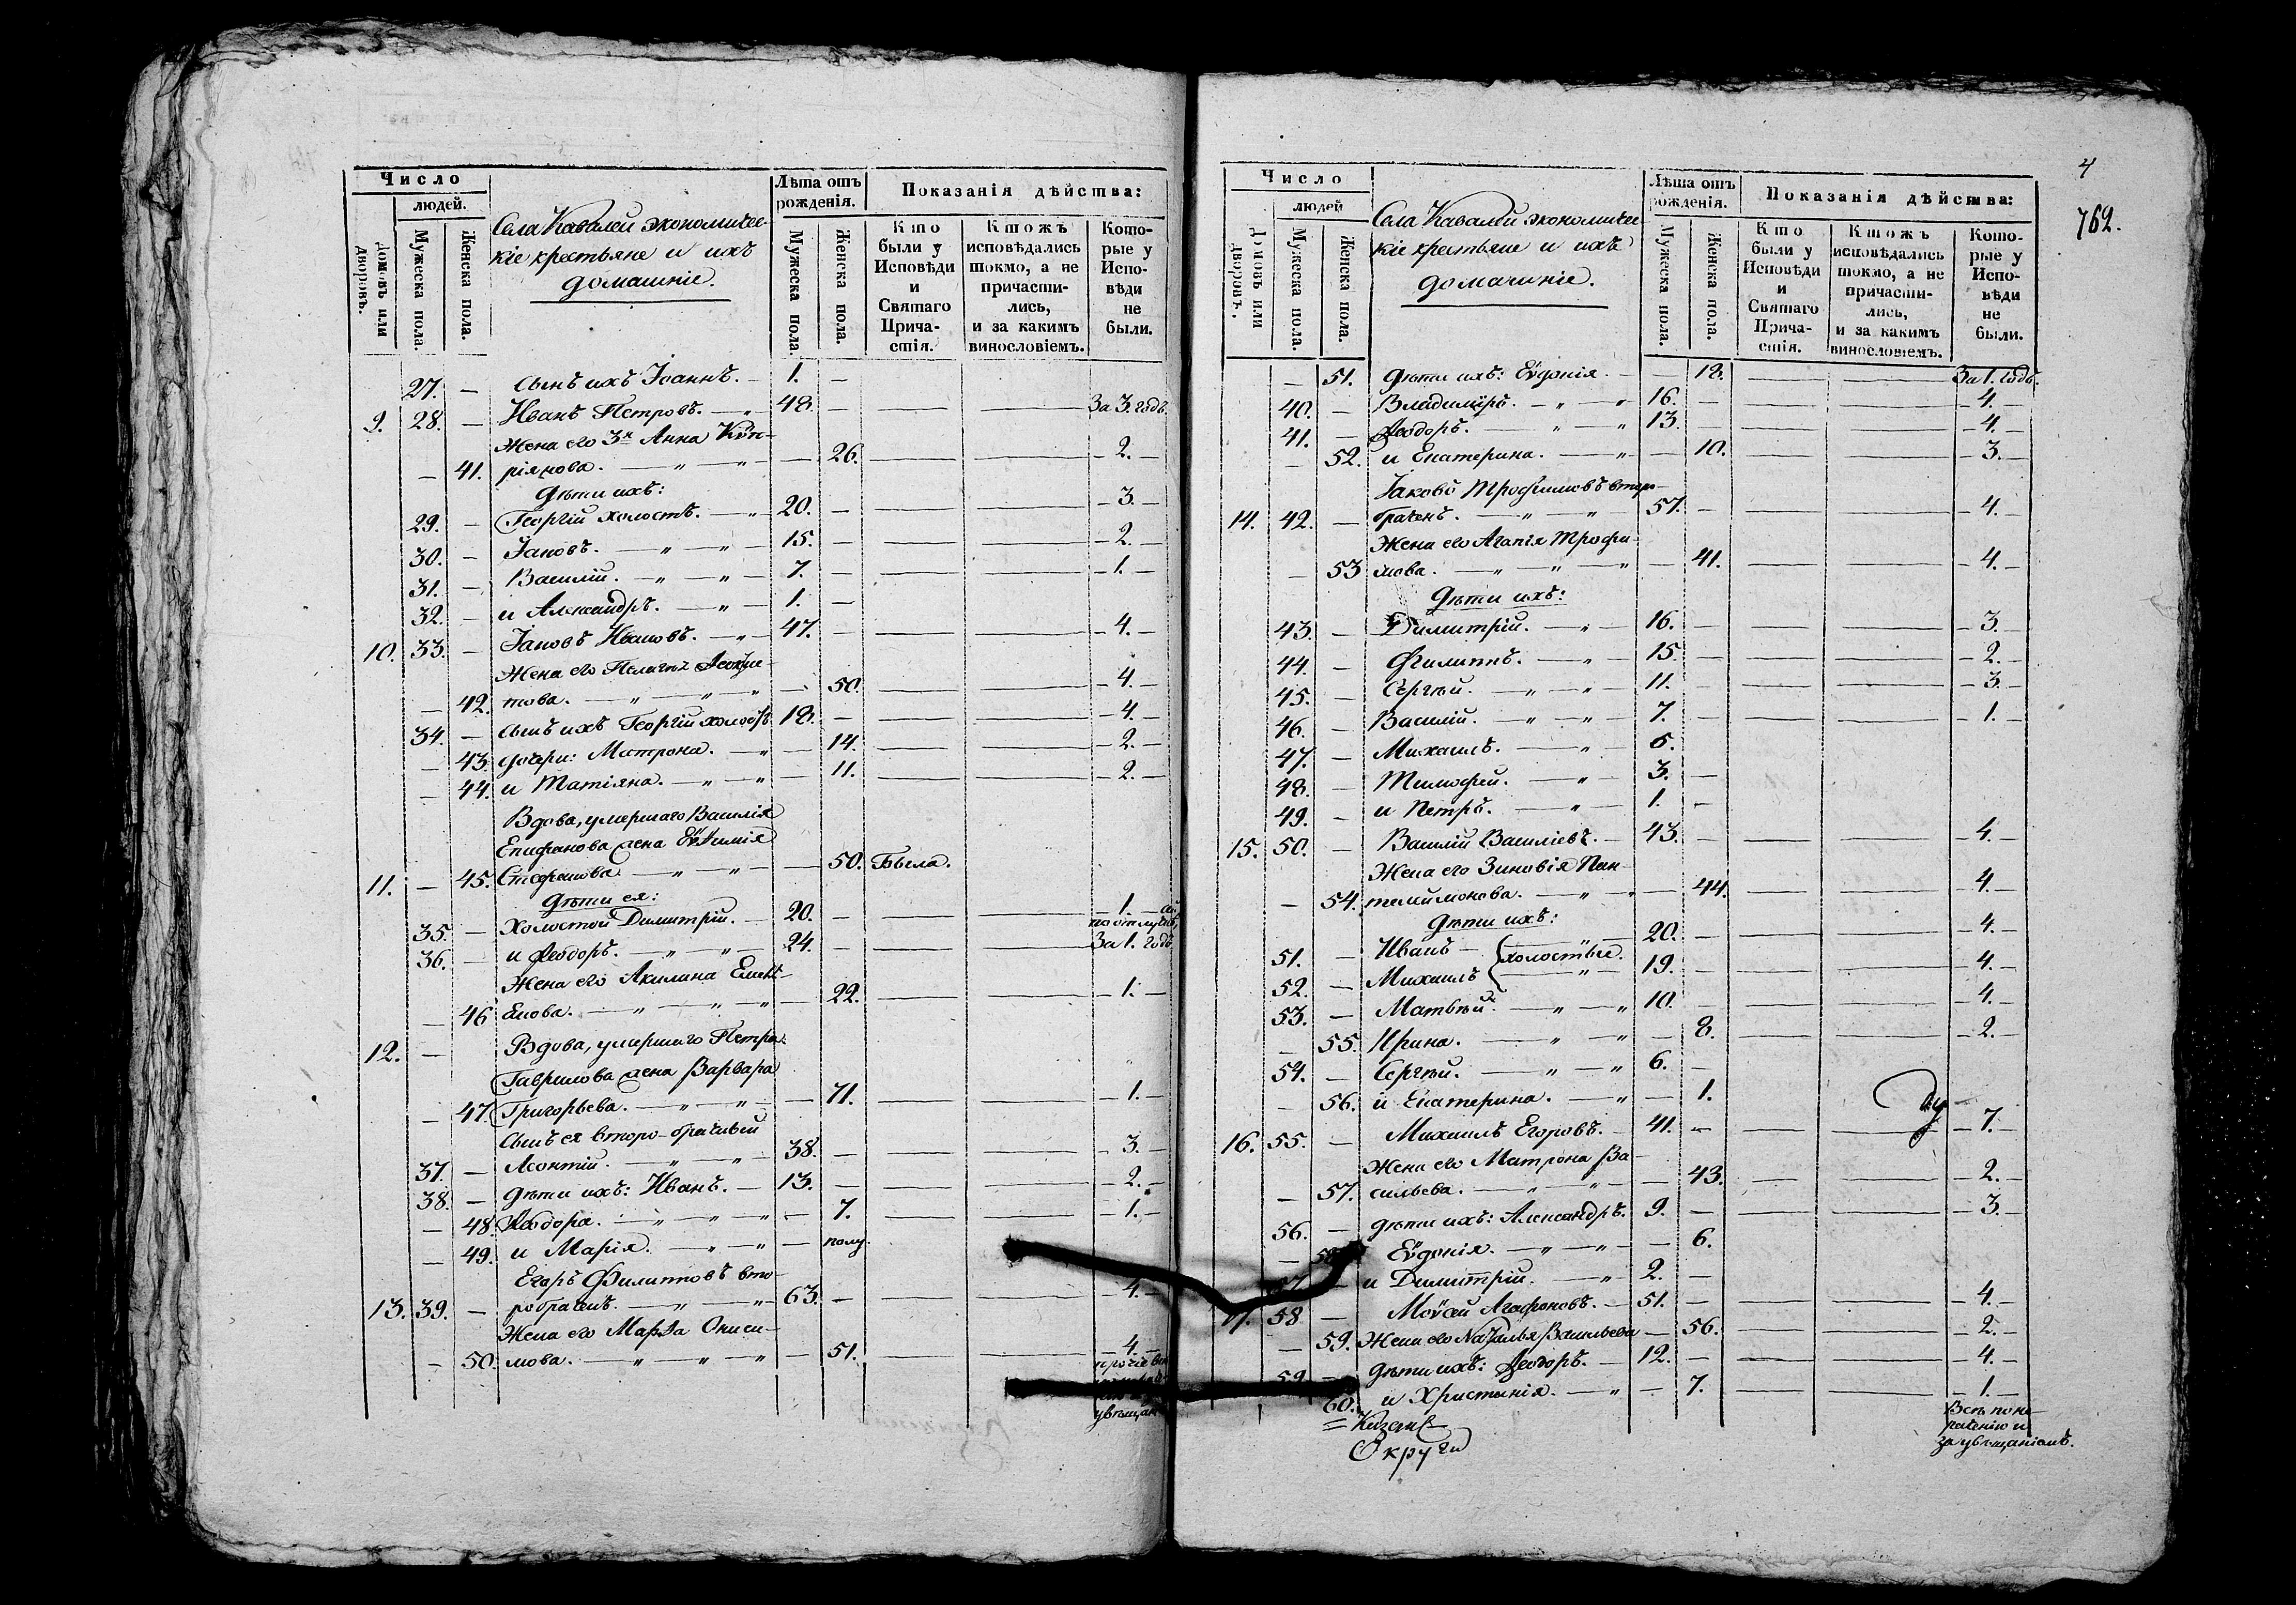 Число
людей.
Домовъ или дворовъ.
Мужеска пола.
Женска пола.
Села Кавалей экономичес-
кіе крестьяне и ихъ
домашніе.
Лѣта отъ рожденія.
Мужеска пола.
Женска пола.
Показанія дѣйства:
Кто были у Исповѣди и Святаго Причастія.
Ктожъ исповѣдались токмо, а не причастились, и за какимъ винословіемъ.
Которые у Исповѣди не были.
27. — сынъ ихъ Іоаннъ. — 1. —
9. 28. — Иванъ Петровъ. — 48. — За 3. годъ.
Жена его 3я Анна Кѵп-
— 41. ріянова. — 26. — 2. —
дѣти ихъ:
29. — Георгій холостъ. — 20. — 3. —
30. — Іаковъ. — 15. — 2. —
31. — Василій. — 7. — 1. —
32. — и Александръ. — 1. —
10. 33. — Іаковъ Ивановъ. — 47. — 4. —
Жена его
— 42. това. — 50. — 4. —
34. — сынъ ихъ Георгій холостъ 18. — 4. —
— 43. дочери: Матрона. — 14. — 2. —
— 44. и Татіяна. — 11. — 2. —
Вдова, умершаго Василія
Епифанова жена Еѵѳимія
11. — 45. Стефанова — 50. Была.
дѣти ея:
35. — Холостой Димитрій. — 20. — 1. —
по отлучкѣ,
36. — и Ѳеодоръ. — 24. — За 1. годъ
Жена его Акилина Емель-
— 46 — 22. — 1. —
12. — Вдова, умершаго Петра
Гаврилова жена Варвара
— 47. Григорьева. — 71. — 1. —
сынъ ея второ-брачный
37. — Леонтій. — 38. — 3. —
38. — дѣти ихъ: Иванъ. — 13. — 2. —
— 48. Ѳеодора. — 7. — 1. —
— 49. и Марія. — полу.
Егоръ Филипповъ вто-
13. 39. — робраченъ. — 63. — 4. —
Жена его Марѳа Ониси-
— 50. мова. — 51. — 4. —
прочіе
увѣщан
4
762.
Число
людей
Домовъ или дворовъ.
Мужеска пола.
Женска пола.
Села Кавалей экономичес-
кіе крестьяне и ихъ
домашніе.
Лѣта отъ рожденія.
Мужеска пола.
Женска пола.
Показанія дѣйства:
Кто были у Исповѣди и Святаго Причастія.
Ктожъ исповѣдались токмо, а не причастились, и за какимъ винословіемъ.
Которые у Исповѣди не были.
— 51. дѣти ихъ: Еѵдокія. — 18. — За 1. годъ.
40. — Владиміръ. — 16. — 4. —
41. — Ѳеодоръ. — 13. — 4. —
— 52. и Екатерина. — 10. — 3. —
Іаковъ Трофимовъ второ-
14. 42. — браченъ. — 57. — 4. —
Жена его Агапія Трофи-
— 53 мова. — 41. — 4. —
дѣти ихъ:
43. — Димитрій. — 16. — 3. —
44. — Филиппъ. — 15. — 2. —
45. — Сергѣй. — 11. — 3. —
46. — Василій. — 7. — 1. —
47. — Михаилъ. — 5.
48. — Тимофей. — 3. —
49. — и Петръ. — 1. —
15. 50. — Василій Василіевъ. — 43. — 4. —
Жена его Зиновія Пан-
— 54. телиимонова. — 44. — 4. —
дѣти ихъ:
51. — Иванъ — холостые. 20. — 4. —
52. — Михаилъ — 19. — 4. —
53. — Матвѣй. — 10. — 4. —
— 55. Ирина. — 8. — 2. —
54. — Сергѣй. — 6. —
— 56. и Екатерина. — 1.
16. 55. — Михаилъ Егоровъ. — 41. — 7. —
Жена его Матрона Ва-
— 57. сильева. — 43. — 2. —
56. — дѣти ихъ: Александръ. 9. — 3. —
— 58 Еѵдокія. — 6.
57. — и Димитрій. — 2. —
17. 58 — Моѵсей Агафоновъ. — 51. — 4. —
— 59. Жена его Наталья Васильева — 56. — 2. —
59 — дѣти ихъ: Ѳеодоръ. — 12. — 4. —
60. и Христинія. — 7. — 1. —
Всѣ по не-
раченію и
за увѣщаніемъ.
Округи